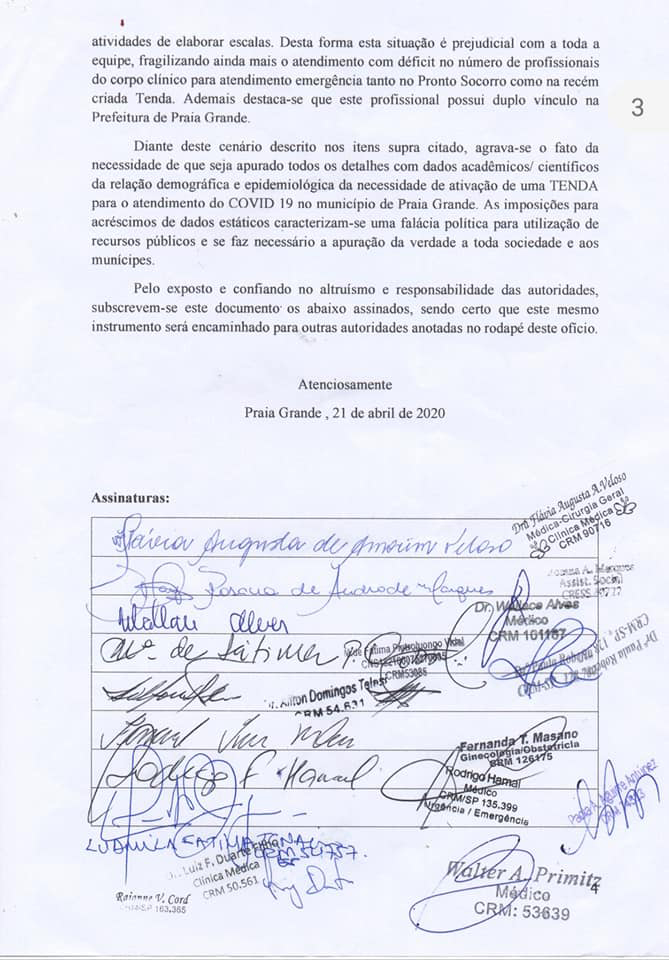 atividades de elaborar escalas. Desta forma esta situação é prejudicial com a toda a
equipe, fragilizando ainda mais o atendimento com déficit no número de profissionais
do corpo clínico para atendimento emergência tanto no Pronto Socorro como na recém
criada Tenda. Ademais destaca-se que este profissional possui duplo vínculo na
Prefeitura de Praia Grande.
3
Diante deste cenário descrito nos itens supra citado, agrava-se o fato da
necessidade de que seja apurado todos os detalhes com dados acadêmicos/ científicos
da relação demográfica e epidemiológica da necessidade de ativação de uma TENDA
para o atendimento do COVID 19 no município de Praia Grande. As imposições para
acréscimos de dados estáticos caracterizam-se uma falácia política para utilização de
recursos públicos e se faz necessário a apuração da verdade a toda sociedade e aos
munícipes.
Pelo exposto e confiando no altruísmo e responsabilidade das autoridades,
subscrevem-se este documento os abaixo assinados, sendo certo que este mesmo
instrumento será encaminhado para outras autoridades anotadas no rodapé deste ofício.
Atenciosamente
Praia Grande , 21 de abril de 2020
Assinaturas:
Drª Flávia Augusta A.Veloso
Médica-Cirurgia Geral
Clínica Médica
CRM 90716
Flávia Augusta de Amorim Veloso
Rosana de Andrade Marques
A. Marques
Assist. Social
CRESS
Wallace Alves
Dr. Wallace Alves
Médico
CRM 101187
Mª de Fátima P.
Fátima Vidal
CRM53085
Drª Paula
CRM-SP
Ailton Domingos
CRM 54.631
Fernanda T. Masano
Ginecologia/Obstetrícia
CRM 126175
Rodrigo F. Hamal
Rodrigo Hamal
Médico
CRM/SP 135.399
Urgência / Emergência
LUDMILA FATIMA
CRM
Luiz F. Duarte
Clínica Médica
CRM 50.561
Raianne V. Cord
163.365
Walter A. Primitz
4
Médico
CRM: 53639